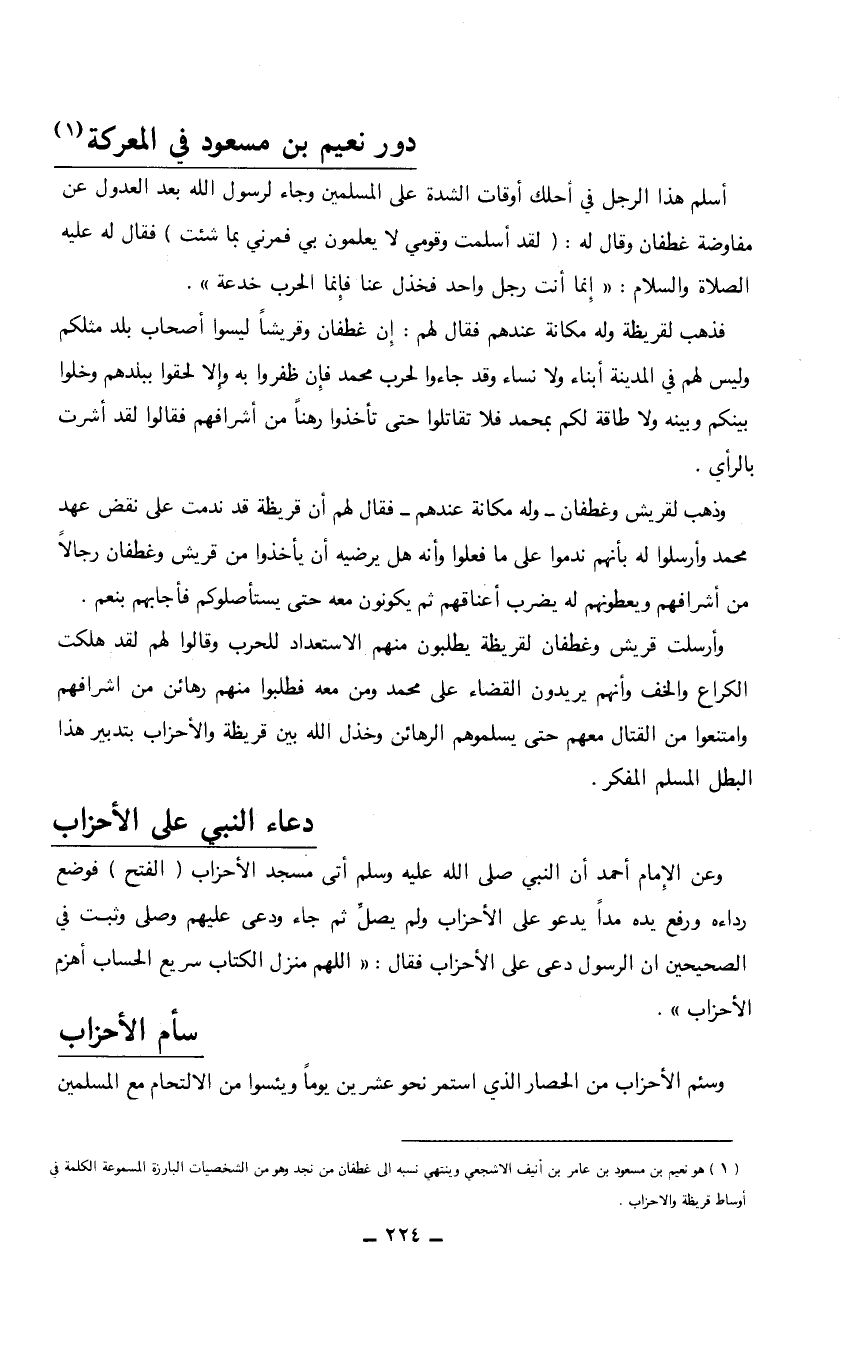 دور نعيم بن مسعود في المعركة (١)
أسلم هذا الرجل في أحلك أوقات الشدة على المسلمين وجاء لرسول الله بعد العدول عن
مفاوضة غطفان وقال له : ( لقد أسلمت وقومي لا يعلمون بي فمرني بما شئت ) فقال له عليه
الصلاة والسلام : « إنما أنت رجل واحد فخذل عنا فإنما الحرب خدعة » .
فذهب لقريظة وله مكانة عندهم فقال لهم : إن غطفان وقريشاً ليسوا أصحاب بلد مثلكم
وليس لهم في المدينة أبناء ولا نساء وقد جاءوا لحرب محمد فإن ظفروا به وإلا لحقوا ببلدهم وخلوا
بينكم وبينه ولا طاقة لكم بمحمد فلا تقاتلوا حتى تأخذوا رهناً من أشرافهم فقالوا لقد أشرت
بالرأي .
وذهب لقريش وغطفان ـ وله مكانة عندهم ـ فقال لهم أن قريظة قد ندمت على نقض عهد
محمد وأرسلوا له بأنهم ندموا على ما فعلوا وأنه هل يرضيه أن يأخذوا من قريش وغطفان رجالاً
من أشرافهم ويعطونهم له يضرب أعناقهم ثم يكونون معه حتى يستأصلوكم فأجابهم بنعم .
وأرسلت قريش وغطفان لقريظة يطلبون منهم الاستعداد للحرب وقالوا لهم لقد هلكت
الكراع والخف وأنهم يريدون القضاء على محمد ومن معه فطلبوا منهم رهائن من اشرافهم
وامتنعوا من القتال معهم حتى يسلموهم الرهائن وخذل الله بين قريظة والأحزاب بتدبير هذا
البطل المسلم المفكر .
دعاء النبي على الأحزاب
وعن الإمام أحمد أن النبي صلى الله عليه وسلم أتى مسجد الأحزاب ( الفتح ) فوضع
رداءه ورفع يده مداً يدعو على الأحزاب ولم يصلِّ ثم جاء ودعى عليهم وصلى وثبت في
الصحيحين ان الرسول دعى على الأحزاب فقال : « اللهم منزل الكتاب سريع الحساب أهزم
الأحزاب » .
سأم الأحزاب
وسئم الأحزاب من الحصار الذي استمر نحو عشرين يوماً ويئسوا من الالتحام مع المسلمين
( ١ ) هو نعيم بن مسعود بن عامر بن أنيف الاشجعي وينتهي نسبه الى غطفان من نجد وهو من الشخصيات البارزة المسموعة الكلمة في
أوساط قريظة والاحزاب .
ـ ٢٢٤ ـ